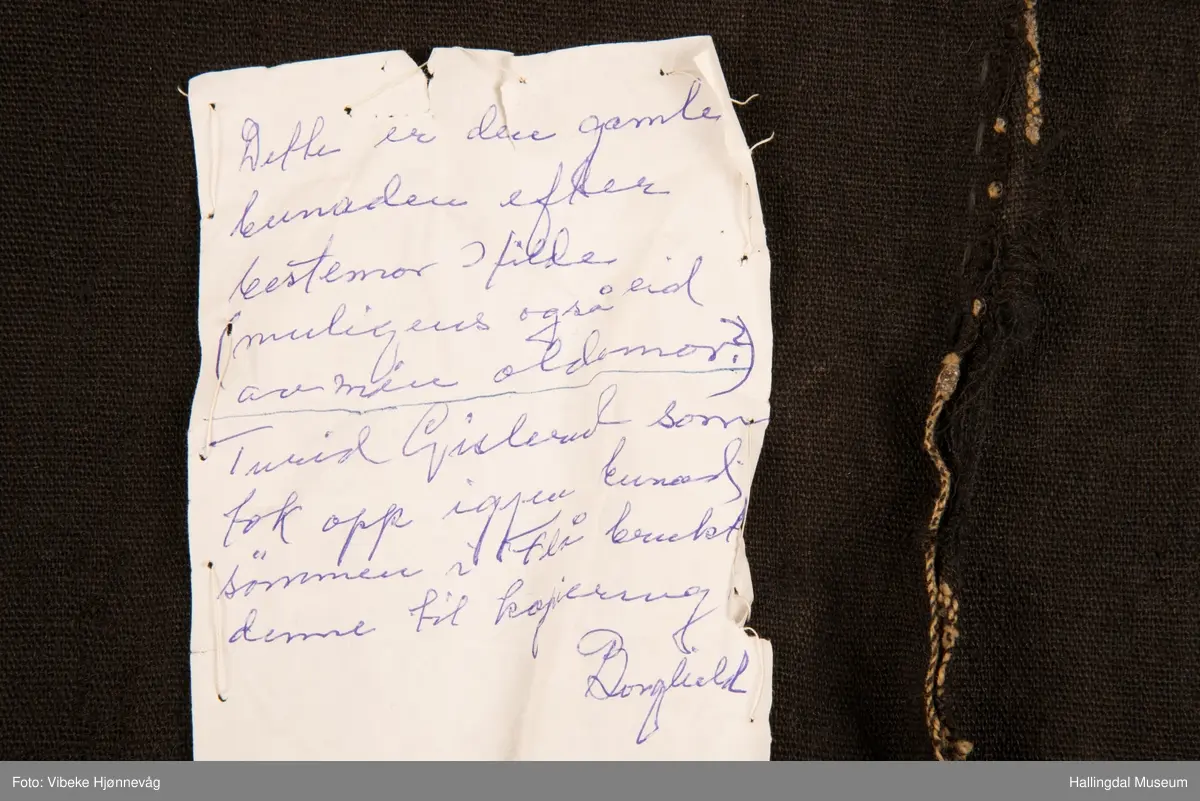 Dette er den gamle
bunaden efter
bestemor
(muligens også eid
av min oldemor?)
Turid Gislerud som
tok opp igjen bunad
sömmen i Flå brukt
denne til kopiering
Borghild
Foto: Vibeke Hjønnevåg
Hallingdal Museum